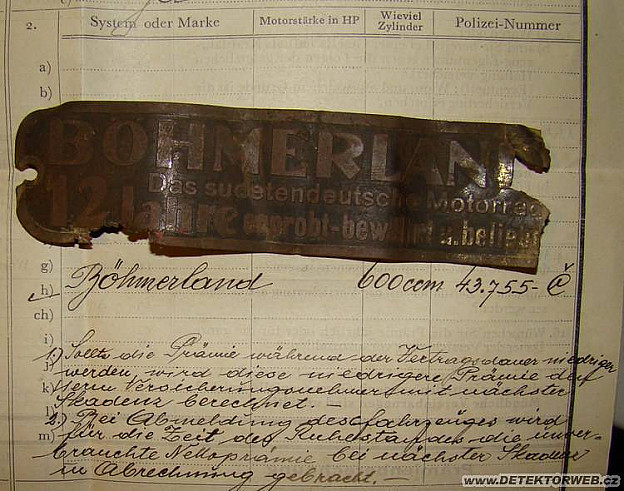 2.
System oder Marke
Motorstärke in HP
Wieviel Zylinder
Polizei-Nummer
a)
b)
BÖHMERLAND
Das sudetendeutsche Motorrad
12 Jahre erprobt-bewährt u. beliebt
g)
h) Böhmerland 600ccm 43.755-Č
ch)
i)
1.) Sollte die Prämie während der Vertragsdauer niedriger
j)
werden, wird diese niedrigere Prämie auf
k)
dem Versicherungsnehmer mit nächster
l)
Skadenz berechnet. —
2.) Bei Abmeldung des Fahrzeuges wird
m)
für die Zeit des Ruhestandes die unver-
brauchte Nettoprämie bei nächster Skadenz
in Abrechnung gebracht. —
www.DETEKTORWEB.cz